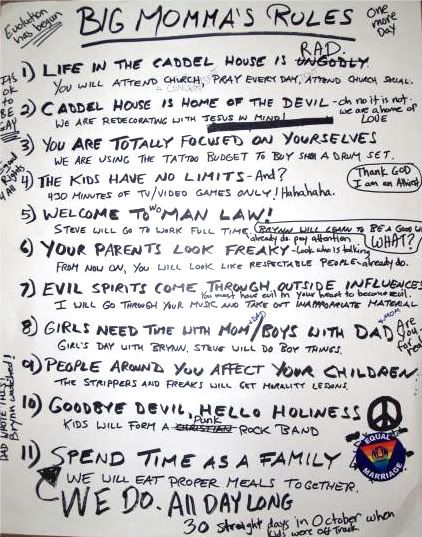 Evolution has begun
BIG MOMMA'S RULES
One more Day
RAD.
1) LIFE IN THE CADDEL HOUSE IS UNGODLY.
YOU WILL ATTEND CHURCH, PRAY EVERY DAY, ATTEND CHURCH SOCIAL.
Its OK to BE GAY
2) CADDEL HOUSE IS HOME OF THE DEVIL - oh no it is not.
we are a home of LOVE
WE ARE REDECORATING WITH JESUS IN MIND!
3) YOU ARE TOTALLY FOCUSED ON YOURSELVES
WE ARE USING THE TATTOO BUDGET TO BUY SHEA A DRUM SET.
Equal Rights 4 All
4) THE KIDS HAVE NO LIMITS - And?
Thank GOD I am an Athiest
430 MINUTES OF TV/VIDEO GAMES ONLY! Hahahaha.
5) WELCOME TO WOMAN LAW!
STEVE WILL GO TO WORK FULL TIME. BRYNN WILL LEARN TO BE A GOOD
already do. pay attention.
6) YOUR PARENTS LOOK FREAKY - Look who is talking
WHAT?
FROM NOW ON, YOU WILL LOOK LIKE RESPECTABLE PEOPLE - already do.
7) EVIL SPIRITS COME THROUGH OUTSIDE INFLUENCES
You must have evil in your heart to become evil.
I WILL GO THROUGH YOUR MUSIC AND TAKE OUT INAPPROPRIATE MATERIAL
MOM
8) GIRLS NEED TIME WITH MOM/BOYS WITH DAD
DAD
Are you for real
GIRL'S DAY WITH BRYNN, STEVE WILL DO BOY THINGS.
9) PEOPLE AROUND YOU AFFECT YOUR CHILDREN.
THE STRIPPERS AND FREAKS WILL GET MORALITY LESSONS.
DAD WROTE THIS! Brynn watched!
10) GOODBYE DEVIL, HELLO HOLINESS
Punk
KIDS WILL FORM A CHRISTIAN ROCK BAND
11) SPEND TIME AS A FAMILY
EQUAL
NOW
MARRIAGE
WE WILL EAT PROPER MEALS TOGETHER.
WE DO. All DAY LONG
30 straight days in October when
kids were off Track